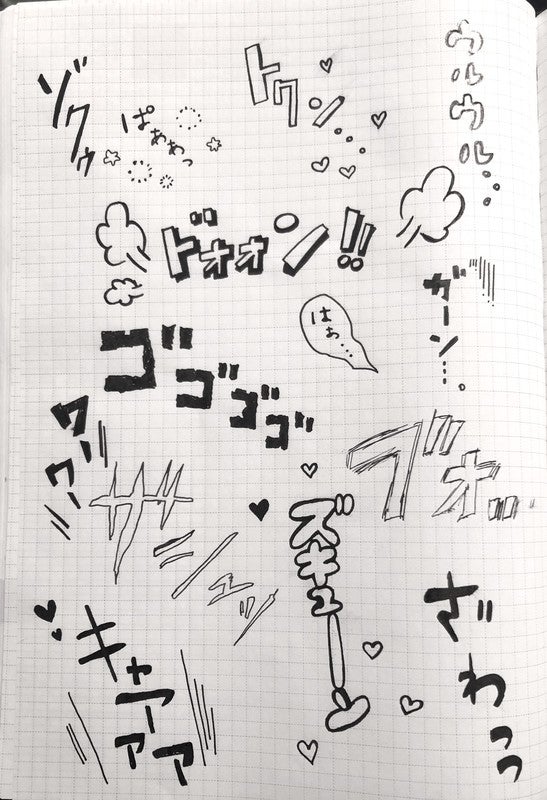 ゾクゥ
ぱぁぁっ
トクン...
ウルウル...
ドォォン!!
はぁ...
ガーン...
ゴゴゴゴ
ワーワー
ブォ...
ザシュッ
ズキューン
キャアアア
ざわっっ